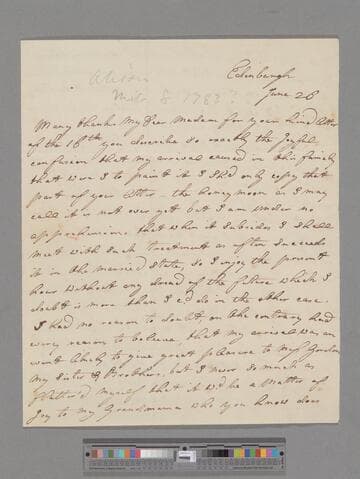 Edinburgh
June 26
Alison
Many thanks My Dear Madam for your kind letter
of the 16th you describe so exactly the Joyful
confusion that my arrival caused in this family
that were I to paint it I shd only copy that
part of your letter – the honey moon as I may
call it is not over yet but I am under no
apprehension that when it subsides I shall
meet with such treatment as often succeeds
it in the married state, so I enjoy the present
hour without any dread of the future which I
doubt is more than I cd do in the other case.
I had no reason to doubt, on the contrary had
every reason to believe, that my arrival was an
event likely to give great pleasure to Gordon
my Sister & Brother, but I never so much as
flatter'd myself that it wd be a matter of
Joy to my Grandmama who you know does